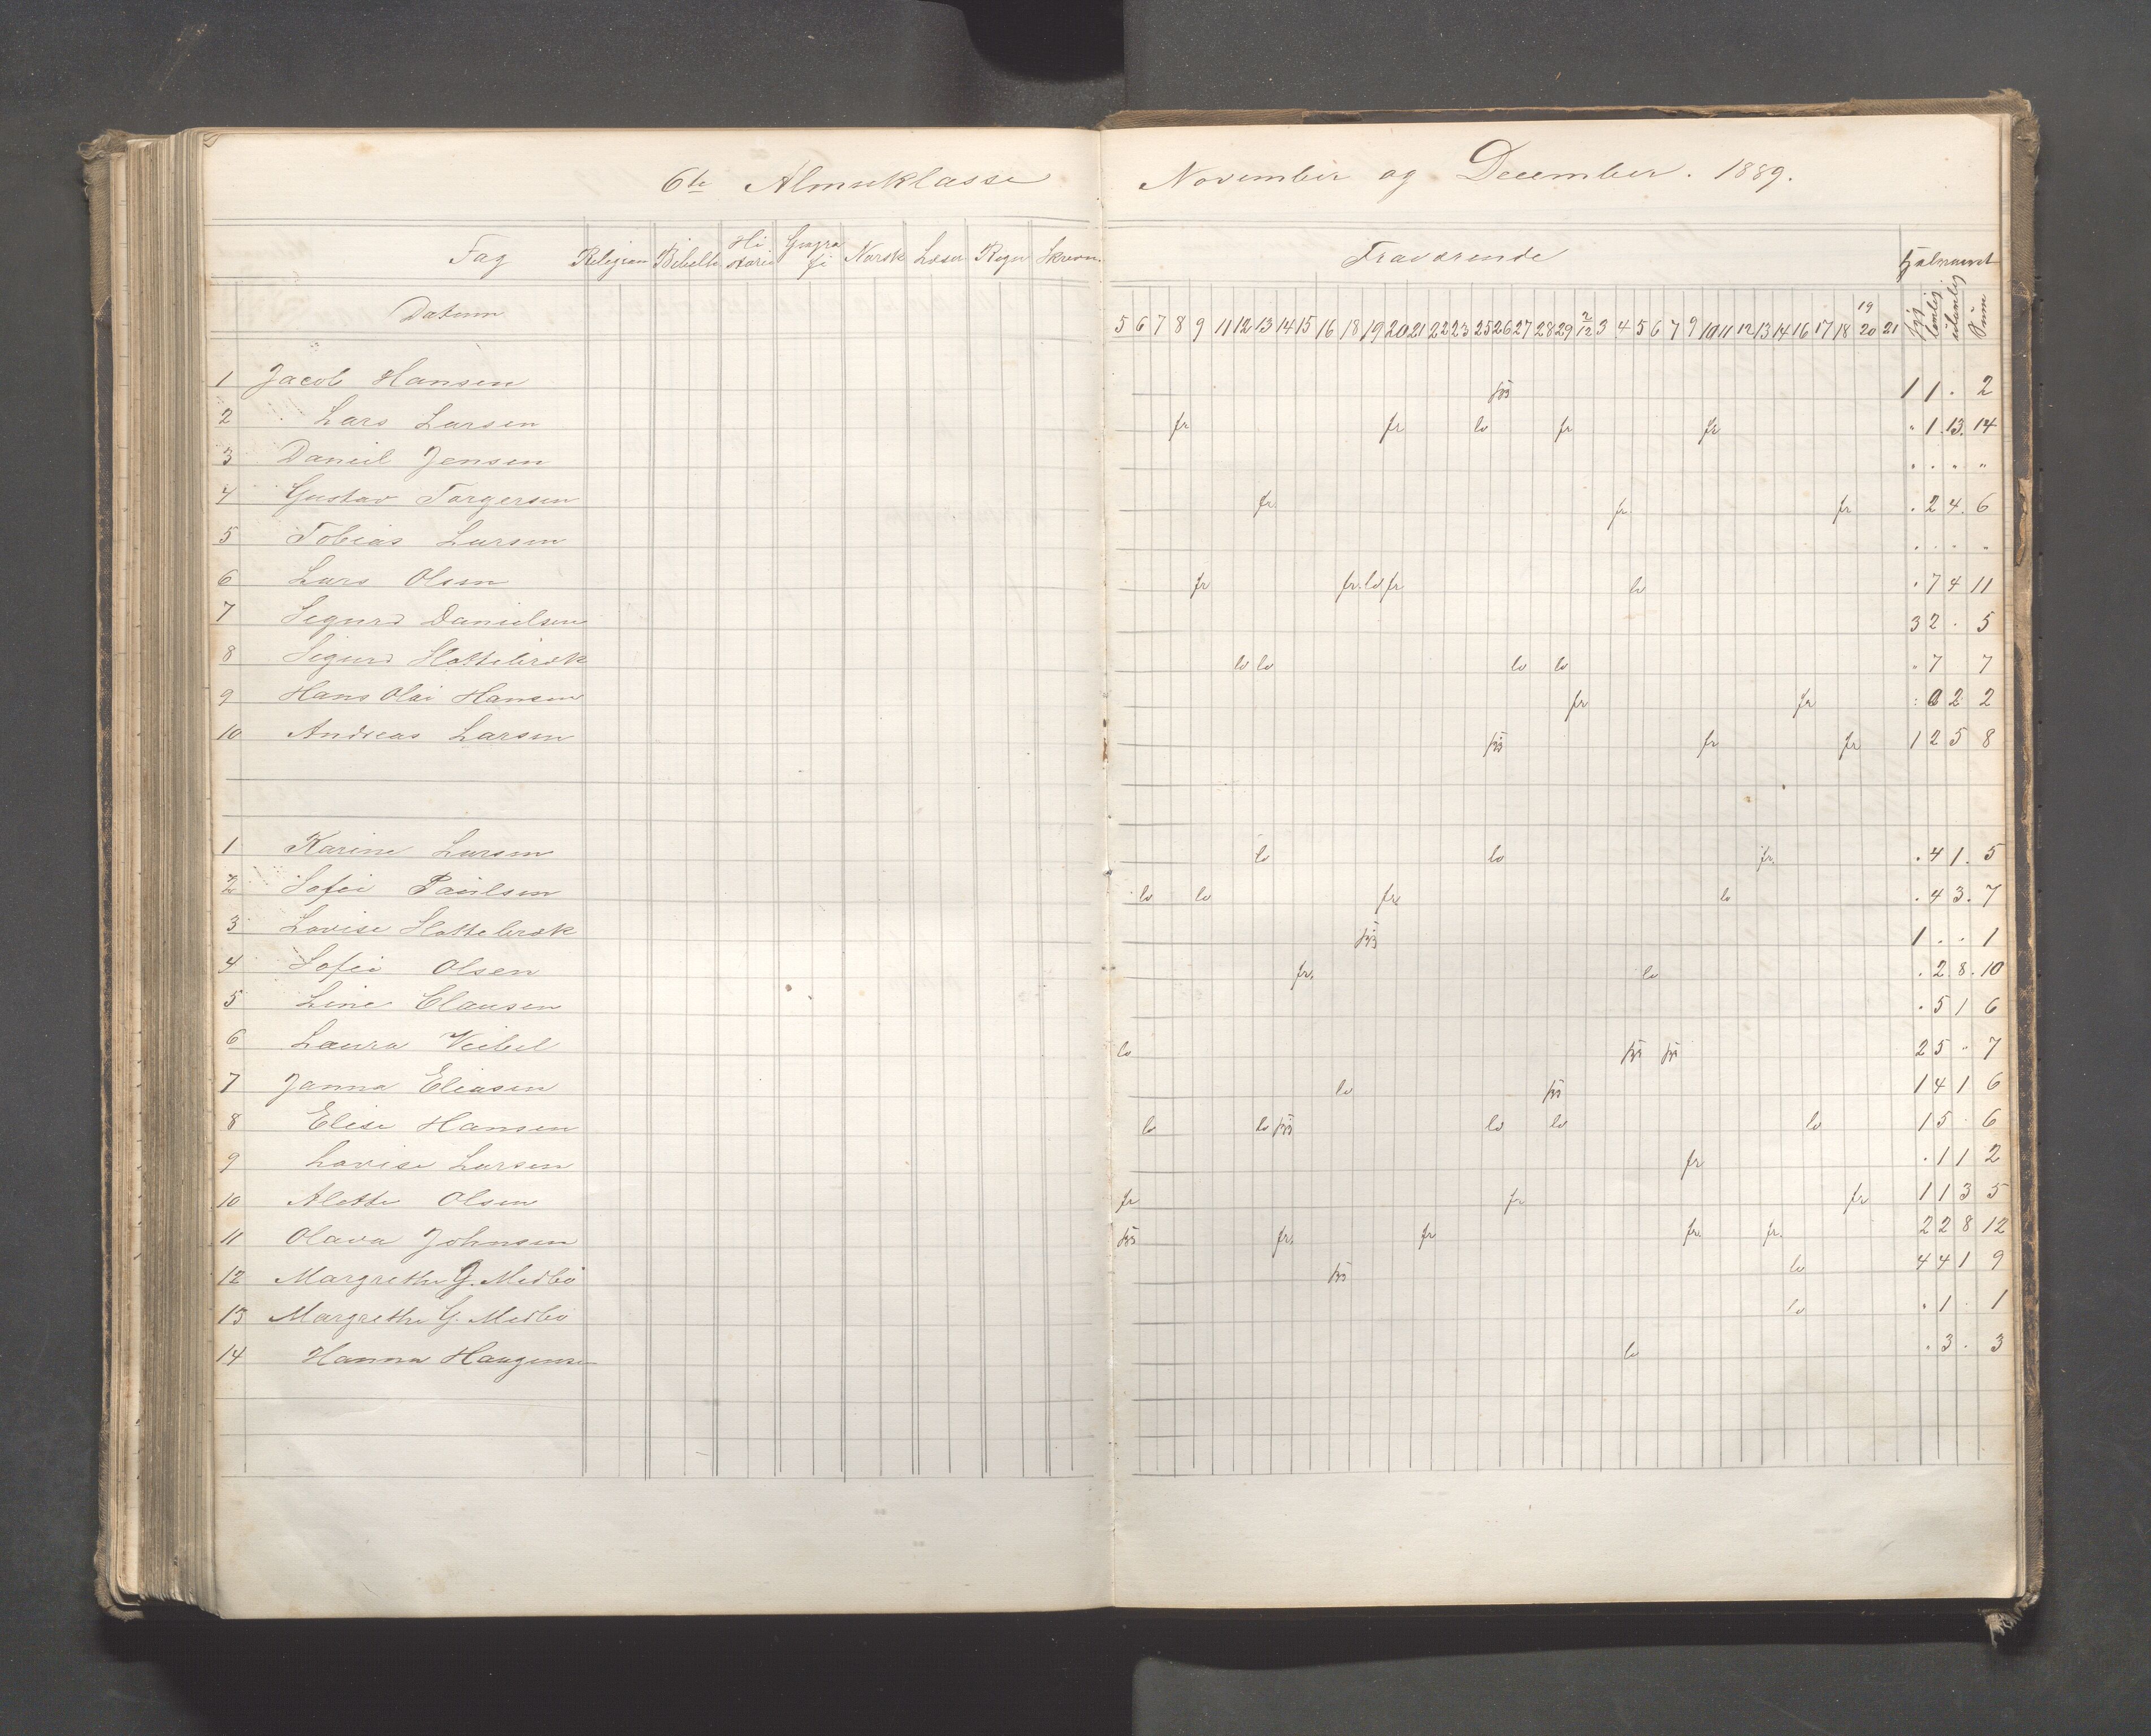 6te Almueklasse November og December. 1889.
Fag Religion Bibelh Historie Geografi Norsk Læsn Regn Skrivn. Fraværende Halvaaret
Datum 5 6 7 8 9 11 12 13 14 15 16 18 19 20 21 22 23 25 26 27 28 29 2/12 3 4 5 6 7 9 10 11 12 13 14 16 17 18 19 20 21 Sum
1 Jacob Hansen syg 1 1 . 2
2 Lars Larsen fr fr lo fr fr " 1 . 13. 14
3 Daniel Jensen " . " "
4 Gustav Torgersen fr. fr. fr . 2 4. 6
5 Tobias Larsen . . . "
6 Lars Olsen fr fr. lo fr lo . 7 4 11
7 Sigurd Danielsen 3 2 . 5
8 Sigurd Slottebrøk lo lo lo lo " 7 7
9 Hans Olai Hansen fr fr : 0 2 2
10 Andreas Larsen syg fr fr 1 2 5 8
1 Karine Larsen lo lo fr. . 4 1. 5
2 Sofie Paulsen lo lo fr lo . 4 3. 7
3 Lovise Slottebrøk syg 1 . . 1
4 Sofie Olsen fr. lo . 2 8. 10
5 Line Clausen . 5 1 6
6 Laura Veibel lo syg syg 2 5 " 7
7 Janna Eliasen lo syg 1 4 1 6
8 Elise Hansen lo lo syg lo lo lo 1 5 . 6
9 Lovise Larsen fr . 1 1 2
10 Alette Olsen fr fr fr 1 1 3 5
11 Olava Johnsen syg fr. fr fr. fr. 2 2 8 12
12 Margrethe J. Medbö syg lo 4 4 1 9
13 Margrethe G. Medbö lo . 1 . 1
14 Hanna Haugensen lo . 3 . 3